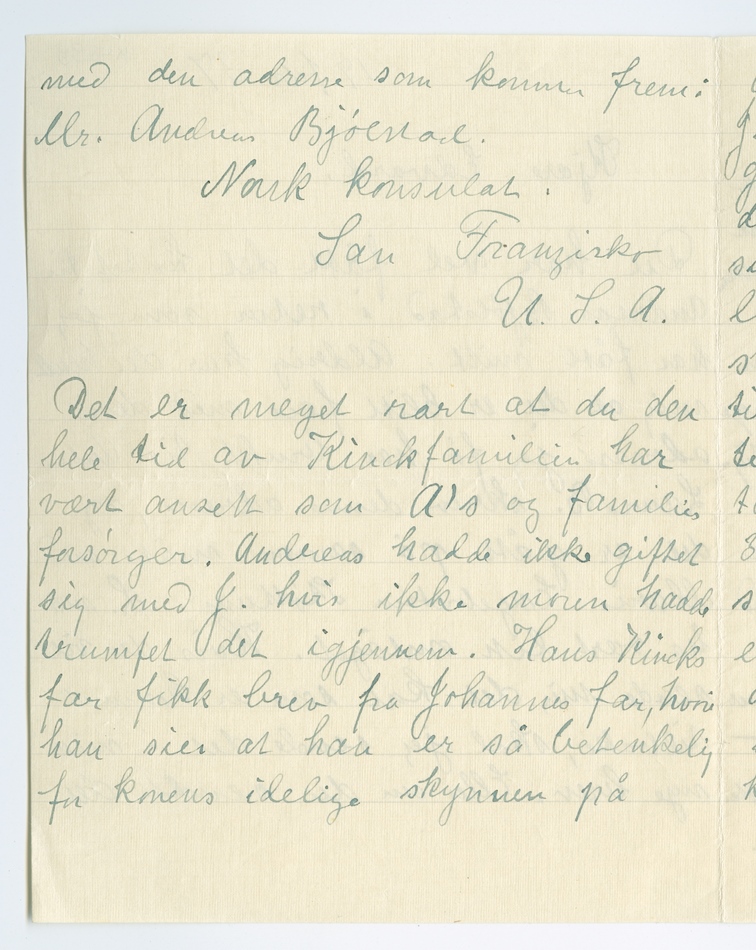 med den adresse som kommer frem:
Mr. Andreas Bjölstad.
Norsk konsulat.
San Franzisko
U. S. A.
Det er meget rart at du den
hele tid av Kinckfamilien har
vært ansett som A's og families
forsørger. Andreas hadde ikke giftet
sig med J. hvis ikke moren hadde
trumfet det igjennem. Hans Kincks
far fikk brev fra Johannes far, hvori
han sier at han er så betenkelig
for konens idelige skynnen på